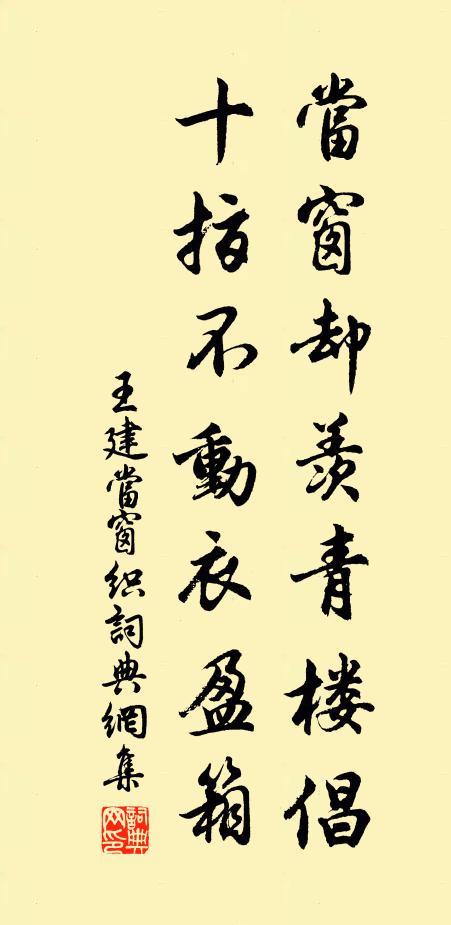 當窗却羨青楼倡
十指不動衣盈箱
王建當窗织詞典網集
詞典網印